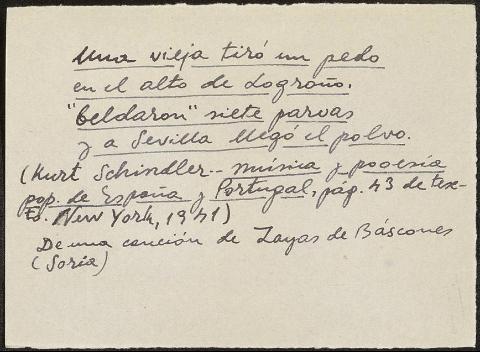 Una vieja tiró un pedo
en el alto de Logroño.
"beldaron" siete parvas
y a Sevilla llegó el polvo.
(Kurt Schindler.- música y poesía
pop. de España y Portugal, pág. 43 de tex-
to. New York, 1941)
De una canción de Zayas de Báscones
(Soria)